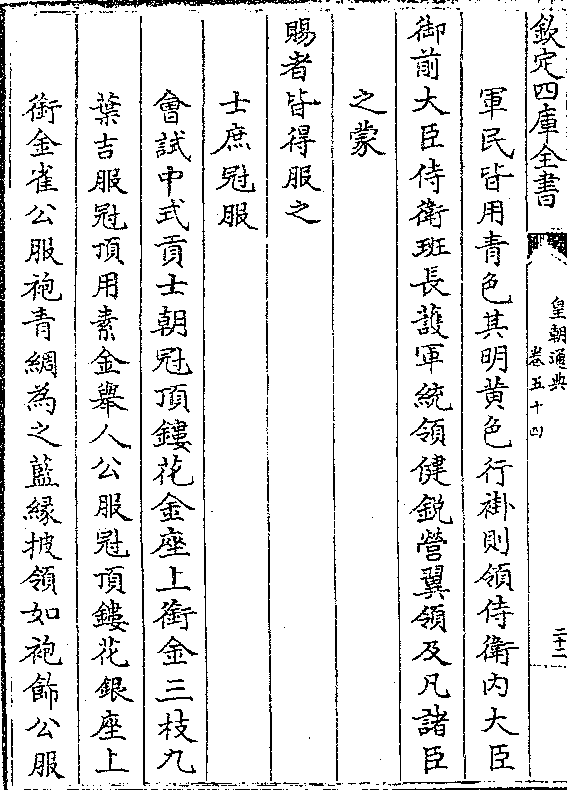 欽定四庫全書
皇朝通典
卷五十四
二十二
軍民皆用青色其明黄色行褂則領侍衛内大臣
御前大臣侍衛班長護軍統領健鋭營翼領及凡諸臣
之蒙
賜者皆得服之
士庶冠服
會試中式貢士朝冠頂鏤花金座上銜金三枝九
葉吉服冠頂用素金舉人公服冠頂鏤花銀座上
銜金雀公服袍青綢為之藍緣披領如袍飾公服